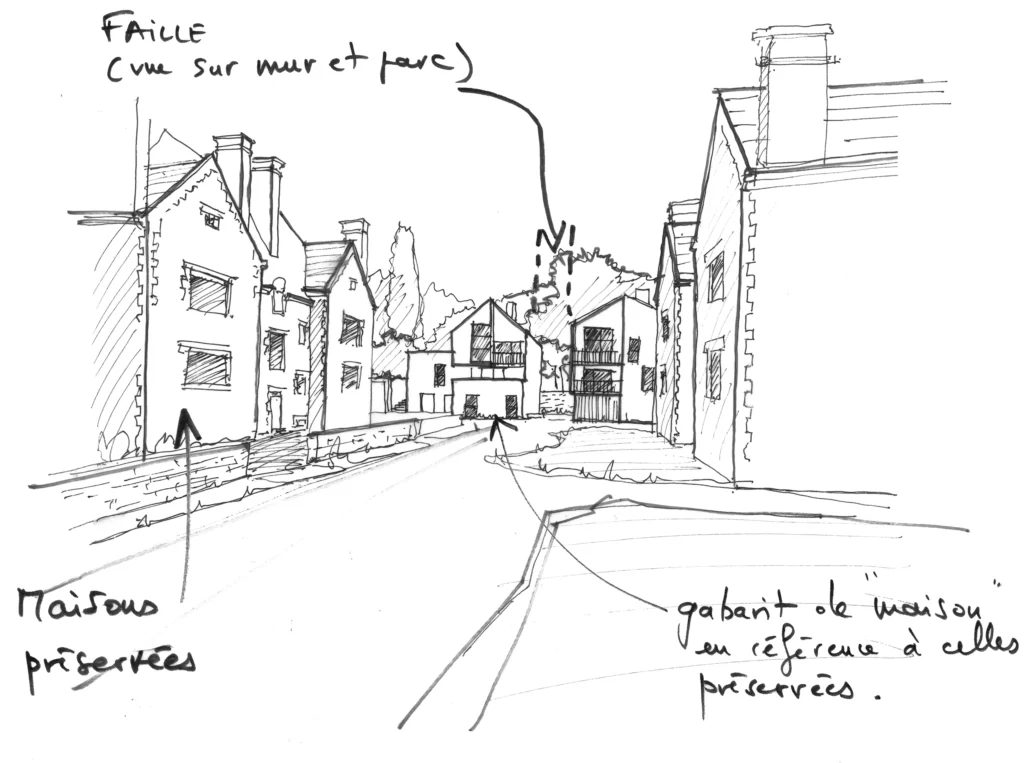 FAILLE
(vue sur mur et parc)
Maisons
préservées
gabarit de "maison"
en référence à celles
préservées.